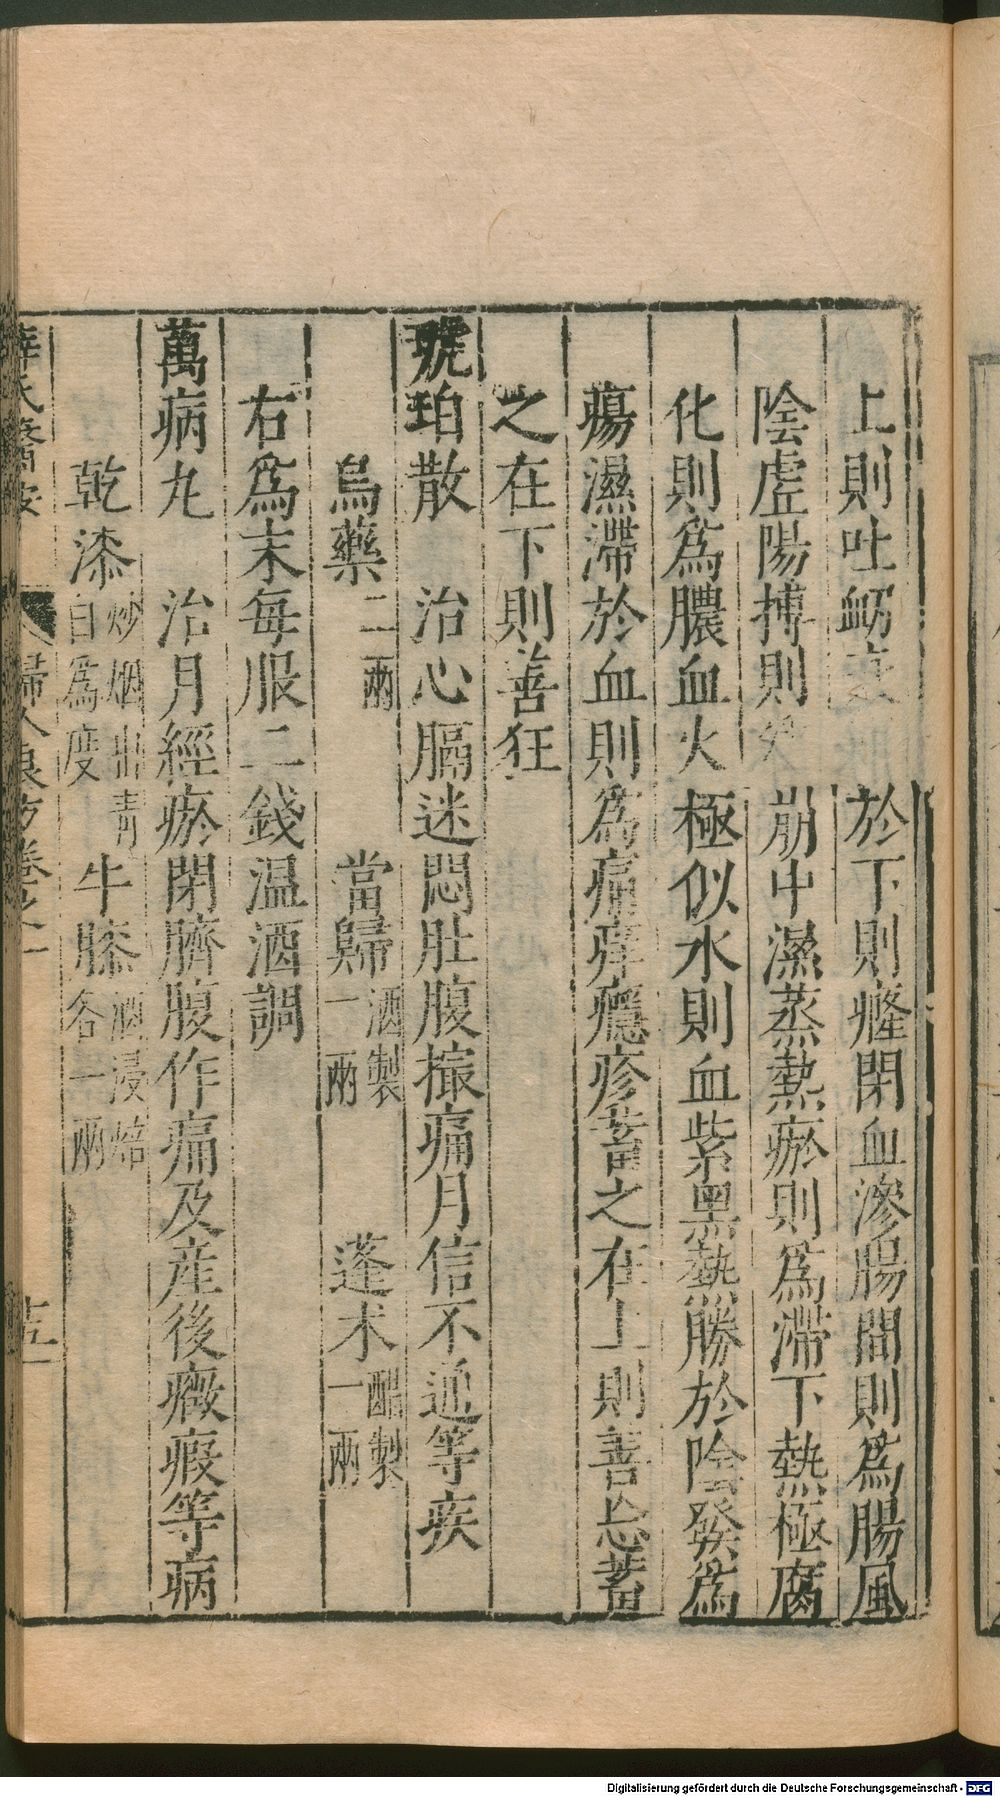 上則吐衂於下則癃閉血滲腸間則爲腸風
陰虛陽搏則崩中濕蒸熱瘀則爲滯下熱極腐
化則爲膿血火極似水則血紫黑熱勝於陰發爲
瘍濕滯於血則爲痛痒癮疹蓄之在上則善忘蓄
之在下則善狂
琥珀散 治心膈迷悶肚腹撮痛月信不通等疾
烏藥二兩 當歸酒製一兩 蓬朮醋製一兩
右爲末每服二錢温酒調
萬病丸 治月經瘀閉臍腹作痛及産後癥瘕等病
乾漆炒烟出青白爲度 牛膝酒浸焙各一兩
薛氏醫按 婦人良方卷之一 十五
Digitalisierung gefördert durch die Deutsche Forschungsgemeinschaft - DFG